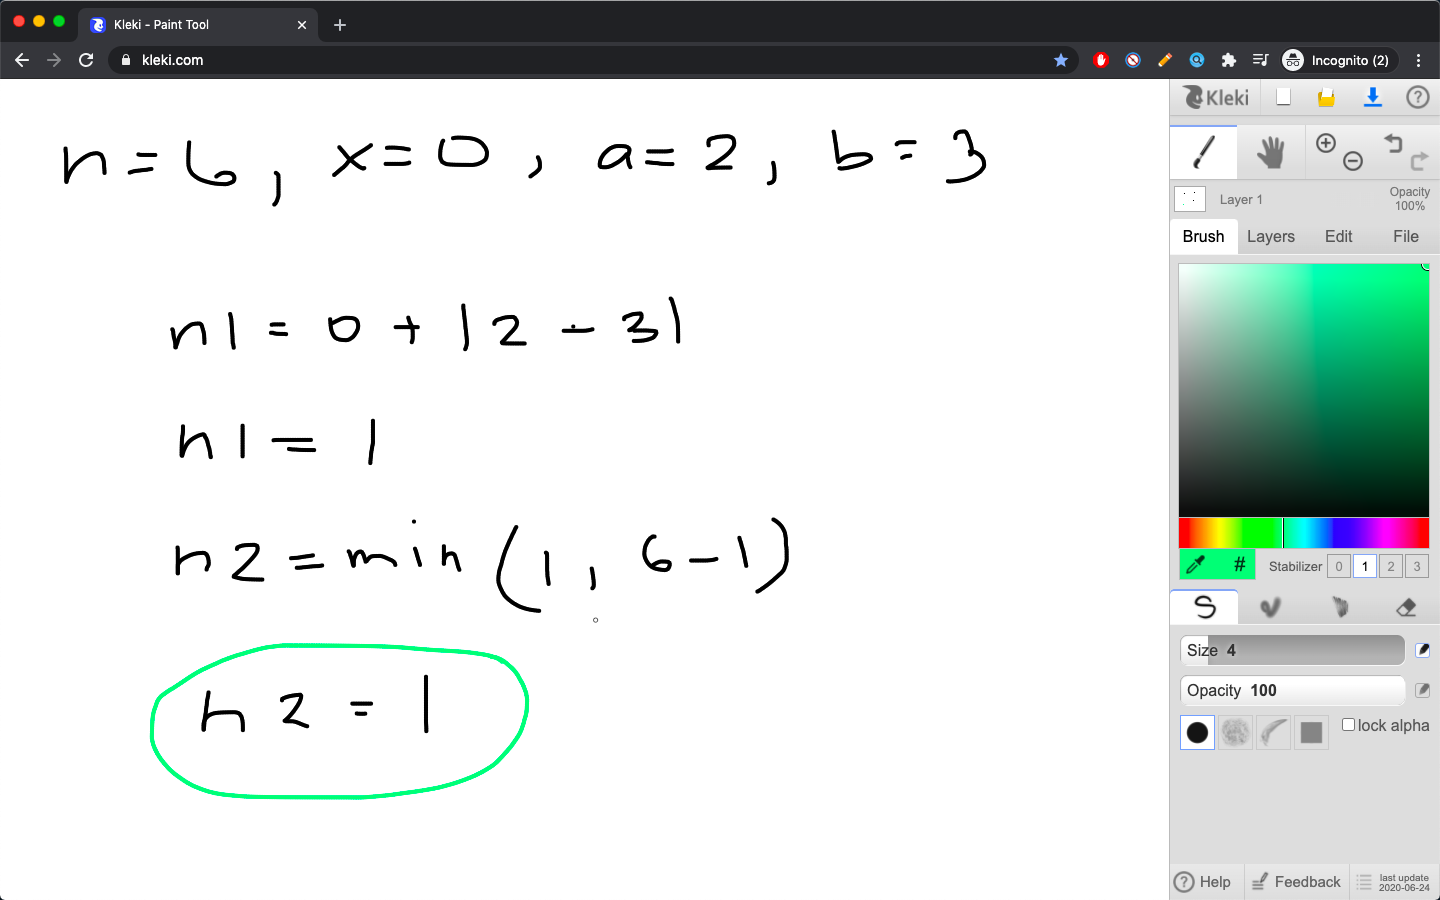 Kleki - Paint Tool
kleki.com
Incognito (2)
n = 6, x = 0, a = 2, b = 3
n1 = 0 + |2 - 3|
n1 = 1
n2 = min(1, 6-1)
n2 = 1
Kleki
Layer 1
Opacity
100%
Brush Layers Edit File
# Stabilizer 0 1 2 3
Size 4
Opacity 100
lock alpha
Help Feedback last update
2020-06-24